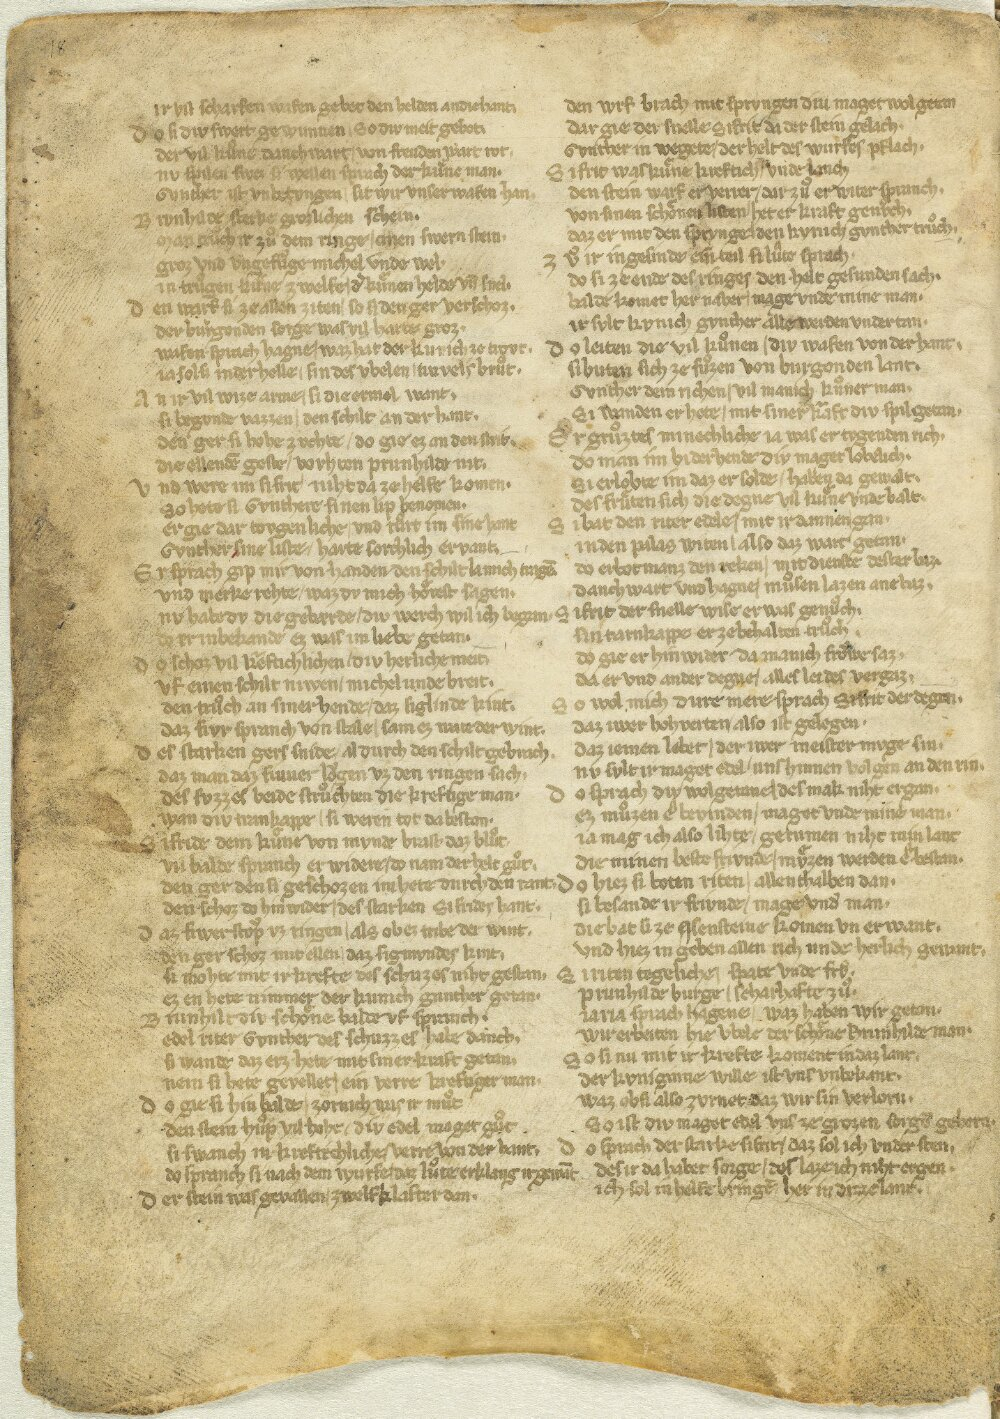 18
ir vil scharfen wafen gebet den helden an die hant.
D o si div swert gewunnen / So div meit gebot.
der vil kůne danchwart / von freuden wart rot.
nv spilen swes si wellen sprach der kůne man.
Gunther ist vnbetvngen / sit wir vnser wafen han.
B rvnhilde sterke grozlichen schein.
man trůch ir zů dem ringe / einen swern stein.
groz vnd vngefůge michel vnde wel.
in trůgen kůme zwelfe / d kůnen helde vñ snel.
D en warf si ze allen ziten / so si den ger verschoz.
der burgonden sorge was vil harte groz.
wafen sprach hagne / waz hat der kunich ze trovt.
ia solt si in der helle / sin des vbelen tiuvels brůt.
A n ir vil wize arme / si die ermel want.
si begvnde vazzen / den schilt an der hant.
den ger si hohe zvchte / do gie ez an den strit.
die ellenden geste / vorhten prunhilde nit.
V nd were im sifrit / niht da ze helfe komen.
So hete si Gvnthere sinen lip benomen.
Er gie dar tovgenliche / vnd růrt im sine hant
Gvnther sine liste / harte sorchlich ervant.
E r sprach gip mir von handen den schilt la mich tragē.
vnd merke rehte / waz dv mich hörest sagen.
nv habe dv die geberde / div werch wil ich began.
do er in bekande ez was im liebe getan.
D o schoz vil kreftichlichen / div herliche meit
vf einen schilt niwen / michel unde breit.
den trůch an siner hende / daz siglinde kint.
daz fivr spranch von stale / sam ez wate der wint.
D es starken gers snide / al durch den schilt gebrach.
daz man daz fiuuer lŏgen vz den ringen sach.
des svzzes beide strůchten die kreftige man.
wan div trankappe / si weren tot da bestan.
S ifride dem kůne von mvnde brast daz blůt.
vil balde spranch er widere / do nam der helt gůt.
den ger den si geschozen im hete durch den rant.
den schoz do hin wider / des starken Sifrides hant.
D az fiwer stŏp vz ringen / als ob ez tribe der wint.
den ger schoz mit ellen / daz sigmvndes kint.
si mohte mit ir krefte des schuzes niht gestan.
ez en hete nimmer der kunich gunther getan.
B runhilt div schŏne balde vf spranch.
edel riter Gvnther des schuzzes habe danch.
si wande daz erz hete mit siner kraft getan.
nein si hete gevellet / ein verre kreftiger man.
D o gie si hin balde / zornich was ir můt
den stein hůp vil hoht / div edel maget gůt
si swanch in kreftechliche / verre von der hant.
do spranch si nach dem wurfe daz lůte erklang ir gewāt
D er stein was gevallen / zwelf klafter dan.
den wrf brach mit spryngen diu maget wol getan
dar gie der snelle Sifrit da der stein gelach.
Gvnther in wegete / der helt des wurfes pflach.
S ifrit was kůne kreftich / vnde lanch
den stein warf er verrer / dar zů er witer spranch.
von sinen schŏnen listen / het er kraft genůch.
daz er mit dem sprvnge / den kvnich gvnther trůch.
Z v ir ingesinde ein teil si lůte sprach.
do si ze ende des ringes den helt gesunden sach.
balde komet her naher / mage vnde mine man.
ir svlt kvnich gvnther alle werden vndertan.
D o leiten die vil kůnen / div wafen von der hant.
si buten sich ze fůzen von burgonden lant.
Gvnther dem richen / vil manich kůner man.
Si wanden er hete / mit siner kraft div spil getan.
E r grůztes minechliche ia was er tvgenden rich.
do nam in bi der hende div maget lobelich.
Si erlŏbte im daz er solde / haben da gewalt.
des frůten sich die degne vil kůne vnde balt.
S i bat den riter edele / mit ir dannen gan.
in den palas witen / also daz wart getan.
do erbot manz den reken / mit dienste dester baz.
danchwart vnd hagne / můsen lazen ane haz.
S ifrit der snelle wise er was genůch.
sin tarnkappe er ze behalten trůch.
do gie er hin wider da manich frŏwe saz.
da er vnd ander degne / alles leides vergaz.
S o wol mich dirre mere sprach Sifrit der degen.
daz iwer hohverten also ist gelegen.
daz iemen lebet / der iwer meister mvge sin.
nv svlt ir maget edel / uns hinnen volgen an den rin.
D o sprach div wolgetane / des mak niht ergan.
Ez můzen ē bevinden / maget vnde mine man.
ia mag ich also lihte / gerumen niht min lant
die minen beste frivnde / mvzen werden ē besant.
D o hiez si boten riten / allenthalben dan.
si besande ir frivnde / mage vnd man.
die bat si ze Isensteine komen vn erwant.
vnd hiez in geben allen rich unde herlich gewant.
S i riten tegeliche / spate vnde frů.
prunhilde burge / scharhafte zů.
ia ria sprach Hagene / waz haben wir getan.
wir erbeiten hie vbele der schŏne brunhilde man.
S o si nu mit ir krefte koment in daz lant.
der kvniginne wille ist vns vnbekant.
waz obsi also zvrnet daz wir sin verlorn.
So ist div maget edel vns ze grozen sorgē geborn.
D o sprach der starke sifrit / daz sol ich vnder sten.
des ir da habet sorge / des laze ich niht ergen.
ich sol iu helfe bringē her in dizze lant.